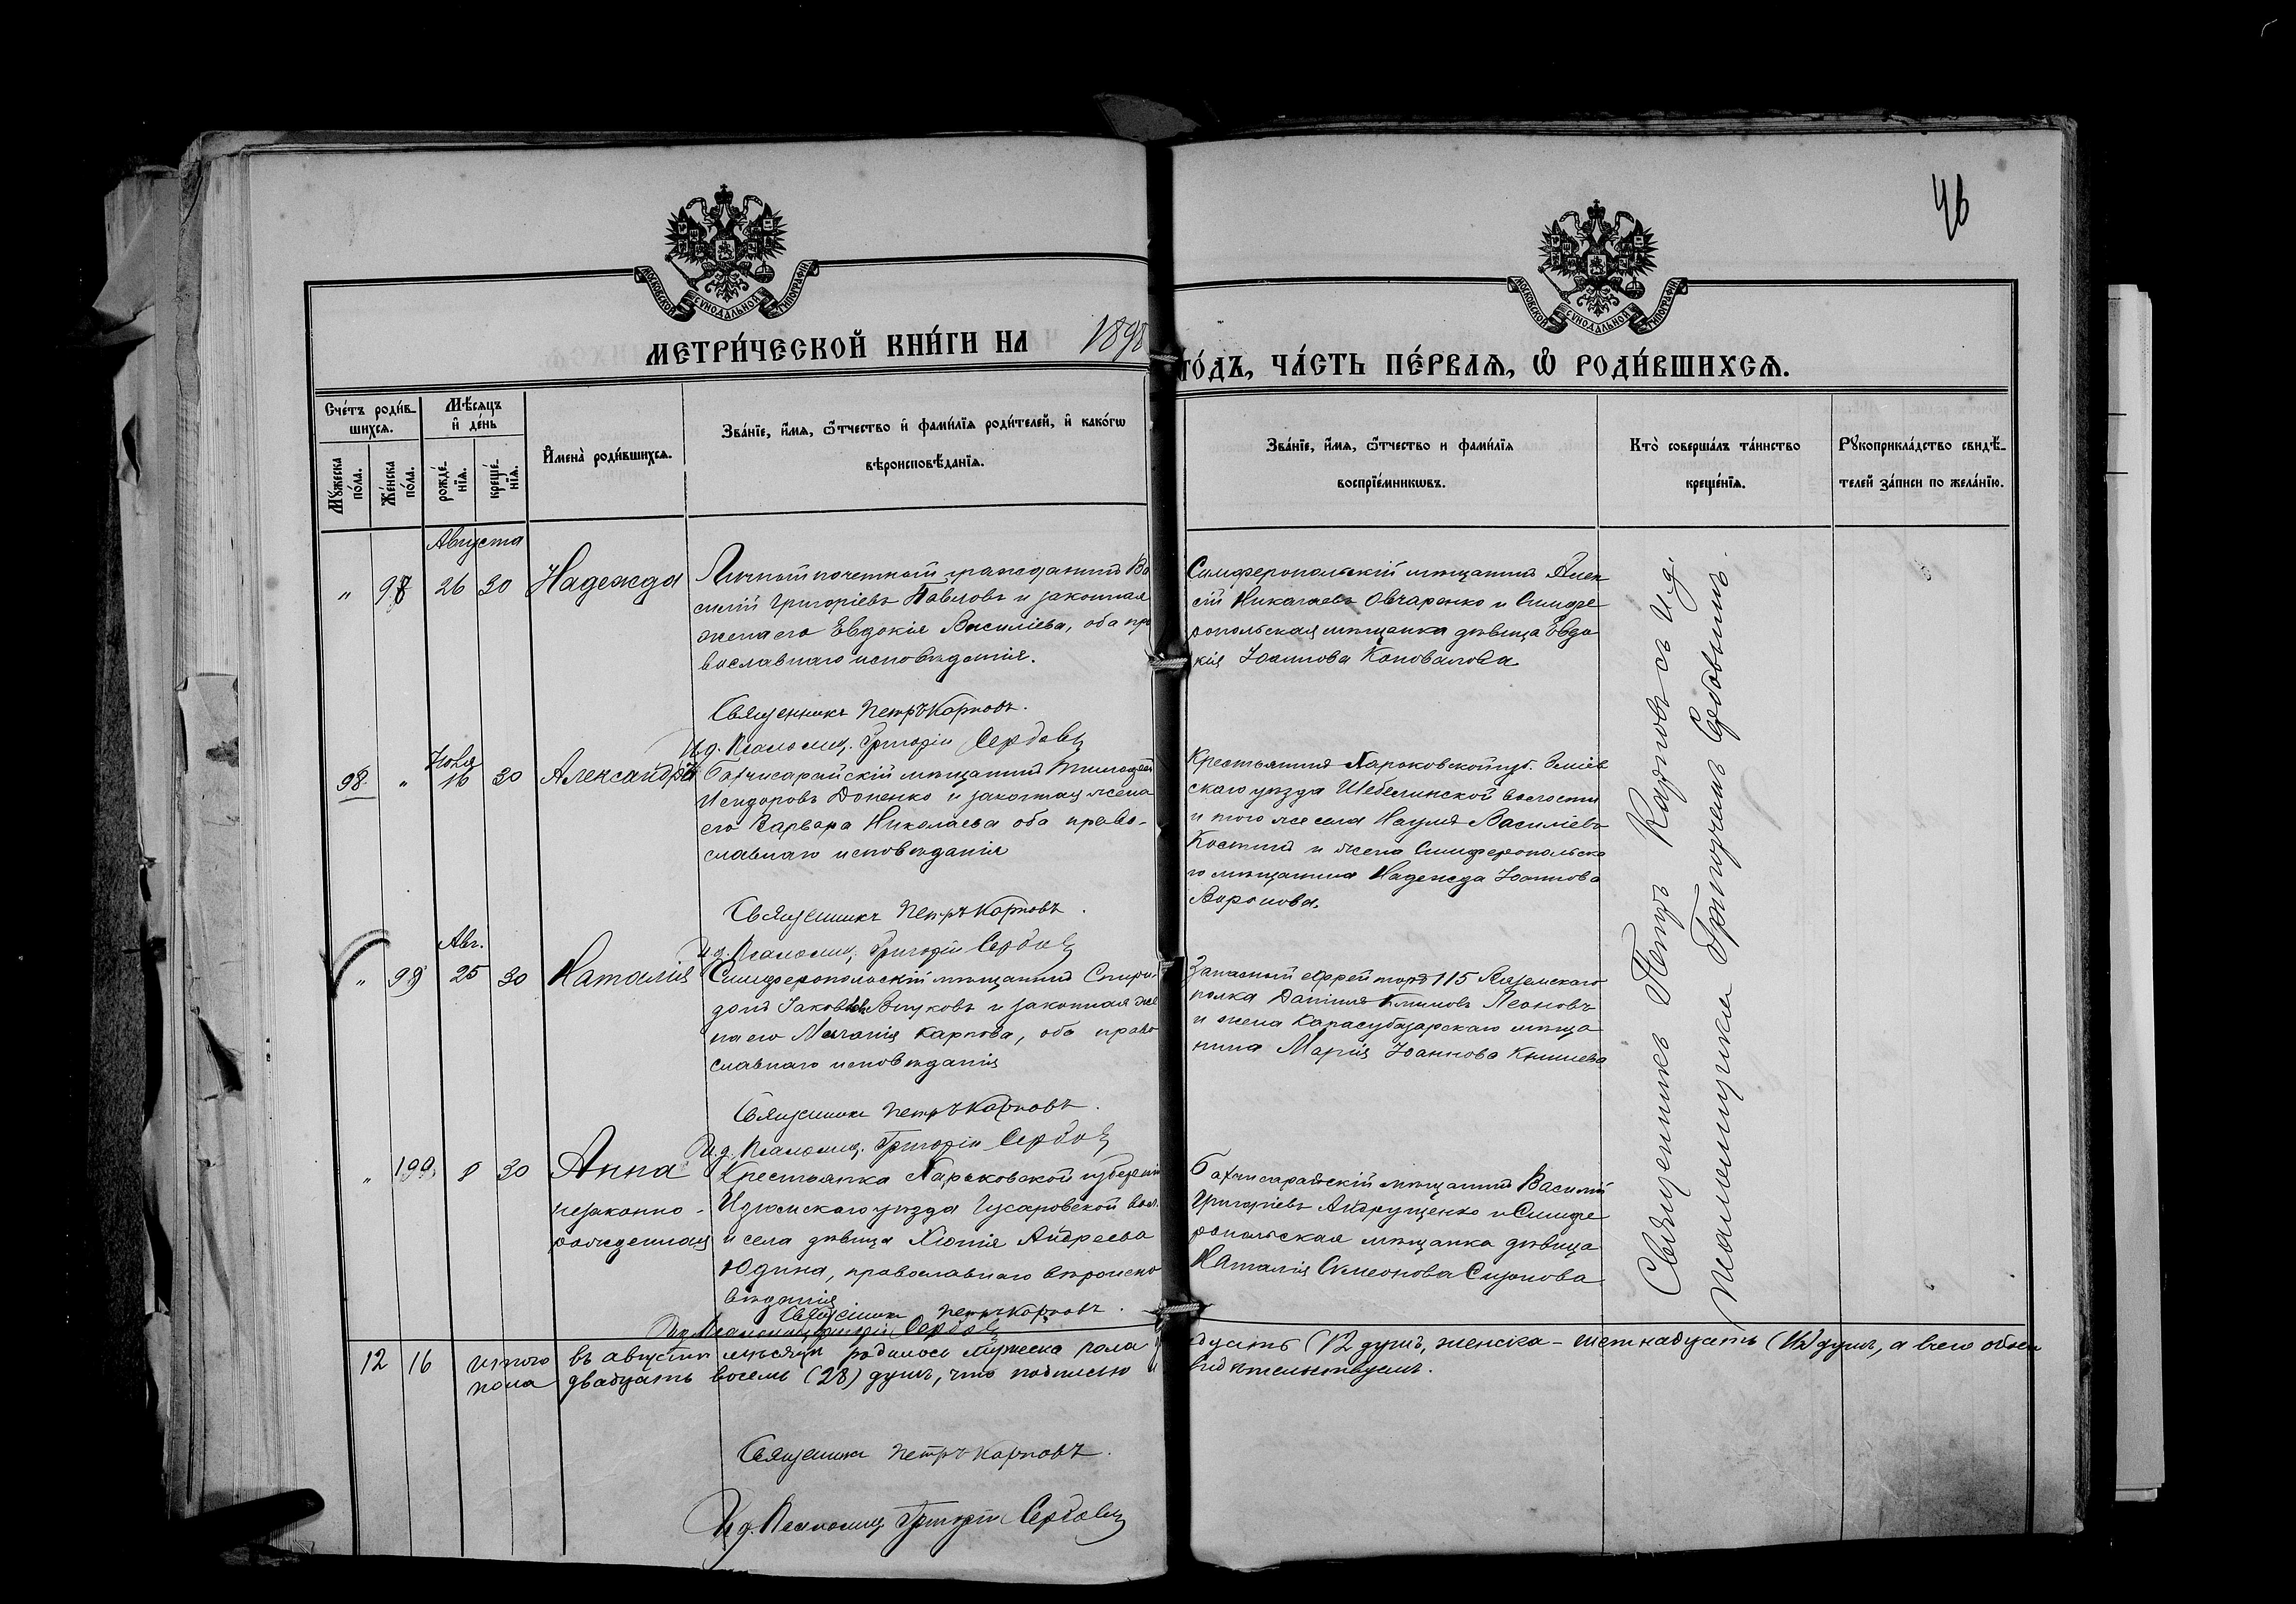 46
МОСКОВСКОЙ СѴНОДАЛЬНОЙ ТИПОГРАФІИ
МОСКОВСКОЙ СѴНОДАЛЬНОЙ ТИПОГРАФІИ
МЕТРИ́ЧЕСКОЙ КНИ́ГИ НА 1898
ГО́ДЪ, ЧА́СТЬ ПЕ́РВАЯ, Ѡ҆ РОДИ́ВШИХСѦ.
Сче́тъ роди́в-
шихсѧ.
Мѣ́сѧцъ
и҆ де́нь
Мꙋ́жеска
по́ла.
Же́нска
по́ла.
рожде́-
нїѧ.
креще́-
нїѧ.
И҆мена̀ роди́вшихсѧ.
Зва́нїе, и҆́мѧ, ѻ҆́тчество и҆ фами́лїѧ роди́телей, и҆ како́гѡ
вѣроисповѣ́данїѧ.
Зва́нїе, и҆́мѧ, ѻ҆́тчество и фами́лїѧ
воспрїе́мникѡвъ.
Кто̀ соверша́лъ та́инство
креще́нїѧ.
Рꙋкоприкла́дство свидѣ́-
телей за́писи по жела́нїю.
Августа
" 98 26 30 Надежда
Личный почетный гражданинъ Ва
силій Григоріевъ Павловъ и законная
жена его Евдокія Василіева, оба пра
вославнаго исповѣданія.
Священникъ Петръ Карповъ.
И.д. Псаломщ. Григорій
Симферопольскій мѣщанинъ Алек
сій Николаевъ Овчаренко и Симфе
ропольская мѣщанка дѣвица Евдо
кія Іоаннова Коновалова
Іюля
98 " 16 30 Александръ
Бахчисарайскій мѣщанинъ Тимофей
Исидоровъ Доненко и законная жена
его Варвара Николаева оба право-
славнаго исповѣданія
Священникъ Петръ Карповъ.
И.д. Псаломщ. Григорій
Крестьянинъ Харьковской губ. Зміев
скаго уѣзда Шебелинской волости
и того же села Наумъ Василіевъ
Костинъ и жена Симферопольска
го мѣщанина Надежда Іоаннова
Авг.
" 99 25 30 Наталія
Симферопольскій мѣщанинъ Спири-
донъ и законная же
на его Меланія Карпова, оба право
славнаго исповѣданія
Священникъ Петръ Карповъ.
И.д. Псаломщ. Григорій
Запасный ефрейторъ 115 Вяземскаго
полка Даніилъ Климовъ Леоновъ
и жена Карасубазарскаго мѣща
нина Марія Іоаннова
" 8 30 Анна
незаконно-
рожденная
Крестьянка Харьковской губерніи
Изюмскаго уѣзда Гусаровской вол.
и села дѣвица Хіонія Андреева
Юдина, православнаго вѣроиспо
вѣданія
Священникъ Петръ Карповъ.
И.д. Псаломщ. Григорій
Бахчисарайскій мѣщанинъ Василій
Григоріевъ Андрущенко и Симфе
ропольская мѣщанка дѣвица
Наталія Симеонова Сизонова
Священникъ Петръ Карповъ съ И.д.
псаломщика Григоріемъ
12 16 итого въ августѣ мѣсяцѣ родилось мужеска пола
дцать (12 душъ, женска - шестнадцать (16) душъ, а всего обоего
пола двадцать восемь (28) душъ, что подписью
свидѣтельствуемъ.
Священникъ Петръ Карповъ.
И.д. Псаломщ. Григорій